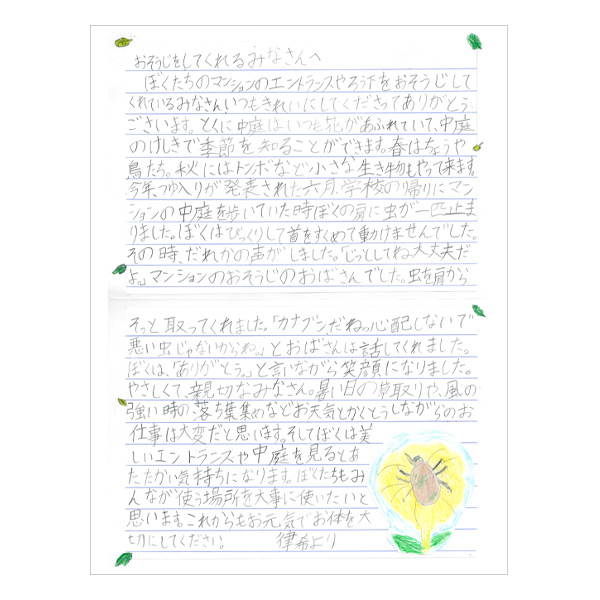 おそうじをしてくれるみなさんへ
ぼくたちのマンションのエントランスやろう下をおそうじして
くれているみなさん、いつもきれいにしてくださってありがとう
ございます。とくに中庭はいつも花があふれていて、中庭
のけしきで季節を知ることができます。春はちょうや
鳥たち。秋にはトンボなど小さな生き物もやって来ます。
今年、つゆ入りが発表された六月、学校の帰りにマン
ションの中庭を歩いていた時ぼくの肩に虫が一匹止ま
りました。ぼくはびっくりして首をすくめて動けませんでした。
その時、だれかの声がしました。「じっとしてね大丈夫だ
よ。」マンションのおそうじのおばさんでした。虫を肩から
そっと取ってくれました。「カナブンだねっ心配しないで
悪い虫じゃないからね。」とおばさんは話してくれました。
ぼくは、「ありがとう。」と言いながら笑顔になりました。
やさしくて、親切なみなさん。暑い日の草取りや、風の
強い時の落ち葉集めなどお天気とかくとうしながらのお
仕事は大変だと思います。そしてぼくは美
しいエントランスや中庭を見るとあ
たたかい気持ちになります。ぼくたちもみ
んなが使う場所を大事に使いたいと
思います。これからもお元気でお体を大
切にしてください。 律希より